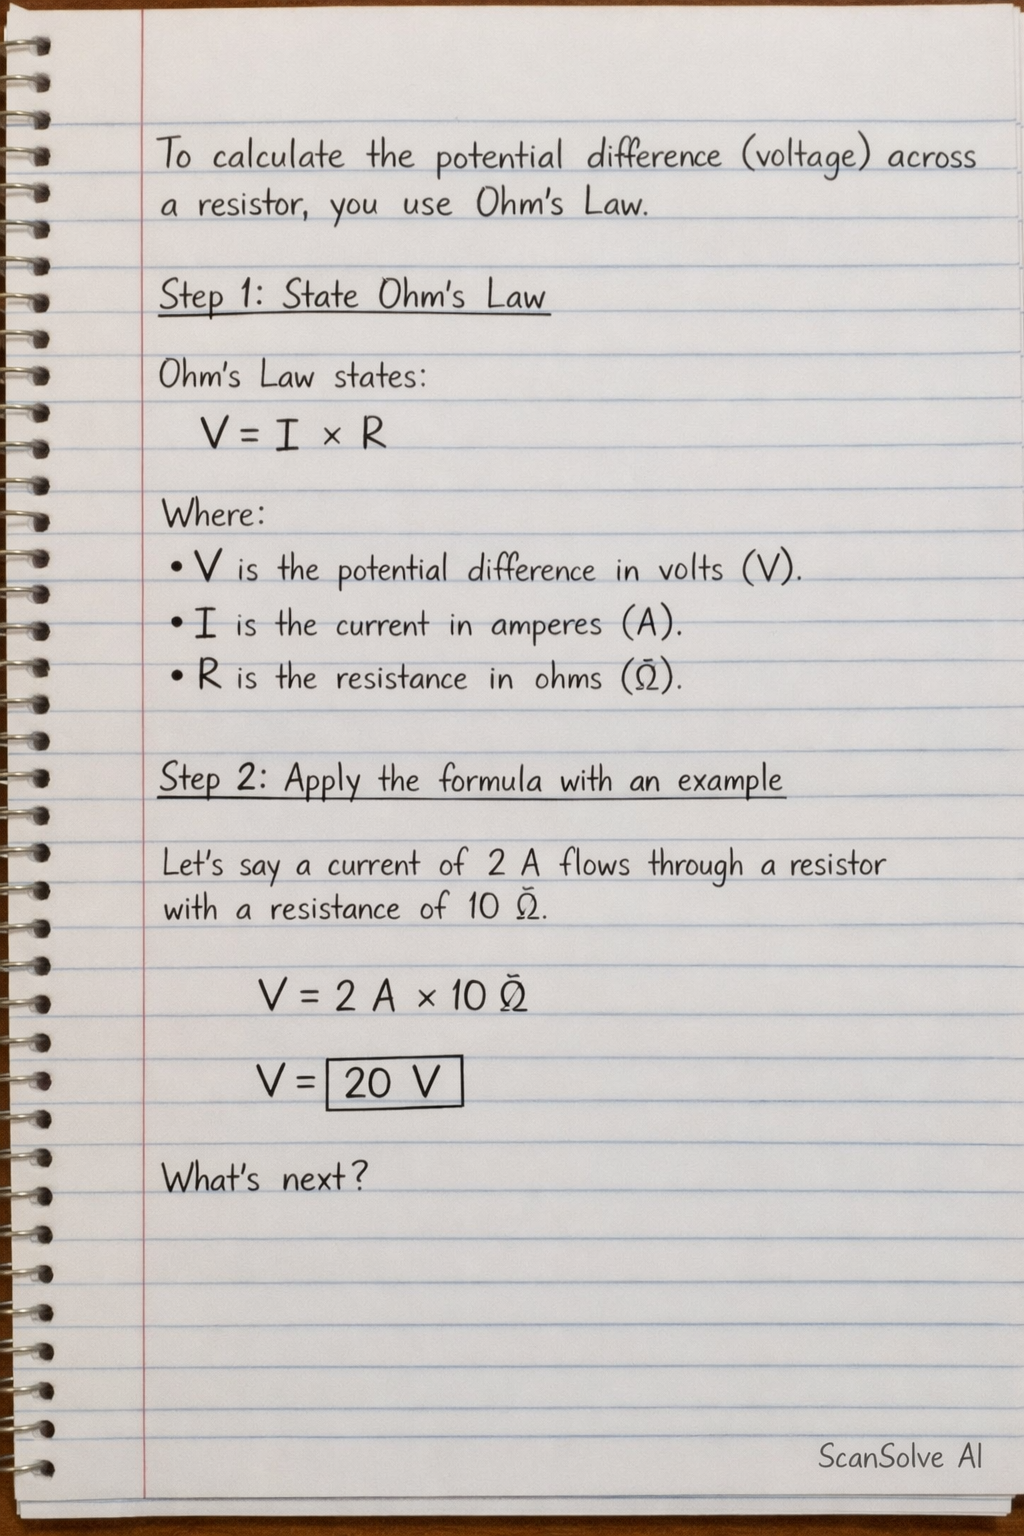 To calculate the potential difference (voltage) across
a resistor, you use Ohm's Law.
Step 1: State Ohm's Law
Ohm's Law states:
V = I × R
Where:
• V is the potential difference in volts (V).
• I is the current in amperes (A).
• R is the resistance in ohms (Ω̄).
Step 2: Apply the formula with an example
Let's say a current of 2 A flows through a resistor
with a resistance of 10 Ω̆.
V = 2 A × 10 Ω̆
V = 20 V
What's next?
ScanSolve AI